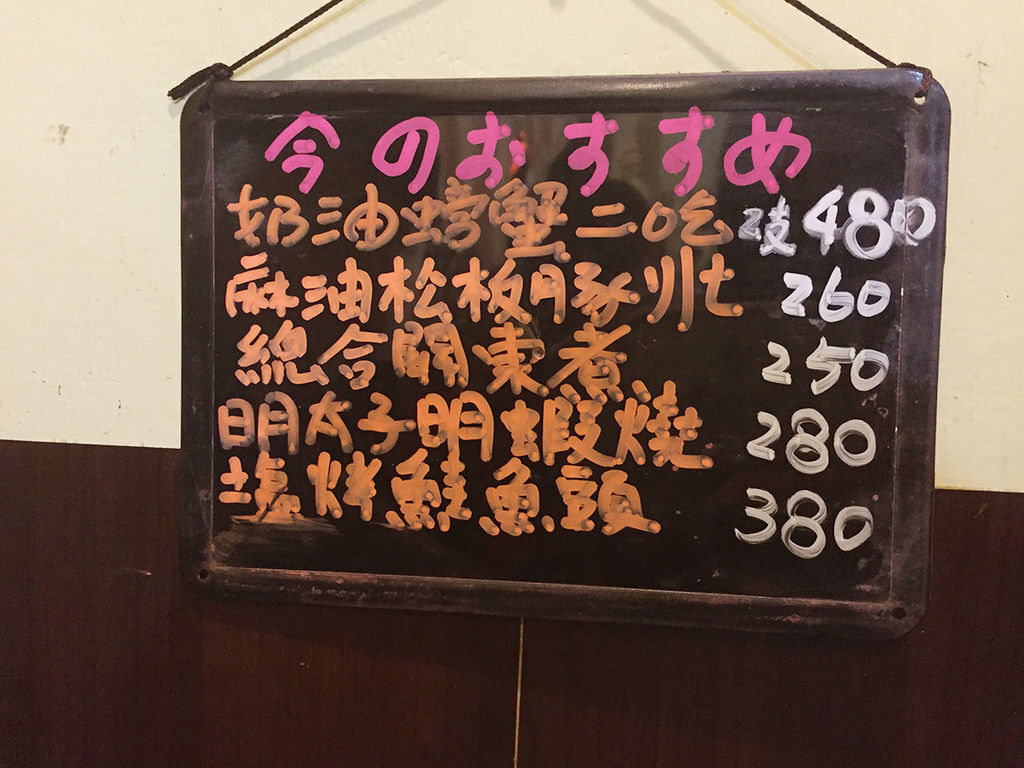 今のおすすめ
奶油螃蟹二吃 2支 480
麻油松板豚 260
總合關東煮 250
明太子明蝦燒 280
塩烤鮭魚頭 380